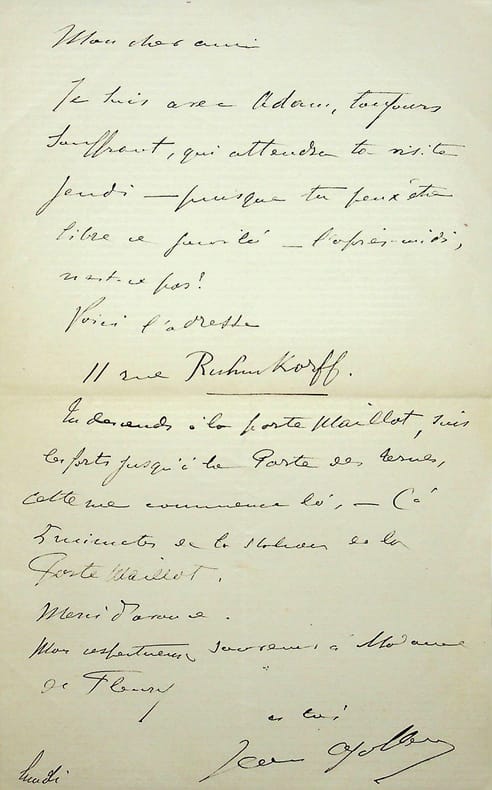 Mon cher ami
Je suis avec Adam, toujours
souffrant, qui attendra ta visite
jeudi — puisque tu peux être
libre ce jour là — l'après-midi,
n'est-ce pas?
Voici l'adresse
11 rue Ruhmkorff.
Tu descends à la porte Maillot, suis
les forts jusqu'à la Porte des Ternes,
cette rue commence là, — C'à
5 minutes de la station de la
Porte Maillot.
Merci d'avance.
Mon respectueux souvenir à Madame
de Fleury
à toi
Jean
lundi